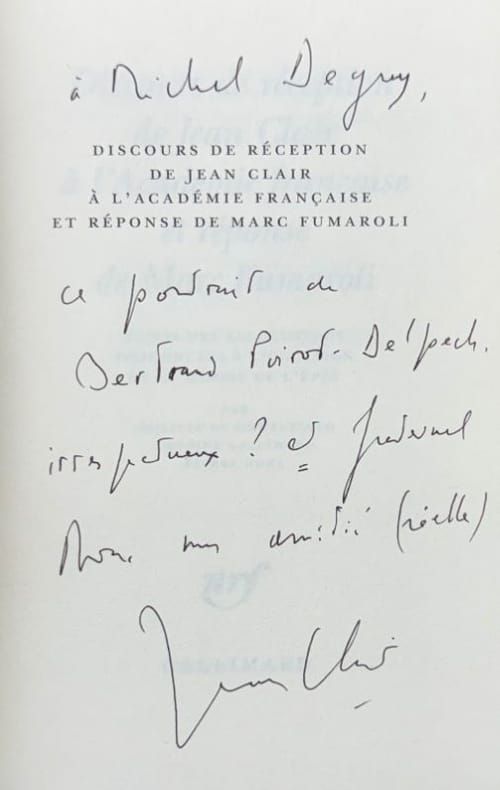 à Michel Deguy,
DISCOURS DE RÉCEPTION
DE JEAN CLAIR
À L'ACADÉMIE FRANÇAISE
ET RÉPONSE DE MARC FUMAROLI
ce portrait de
Bertrand Poirot-Delpech.
irrespectueux ? et fraternel
mon amitié (réelle)
Jean Clair